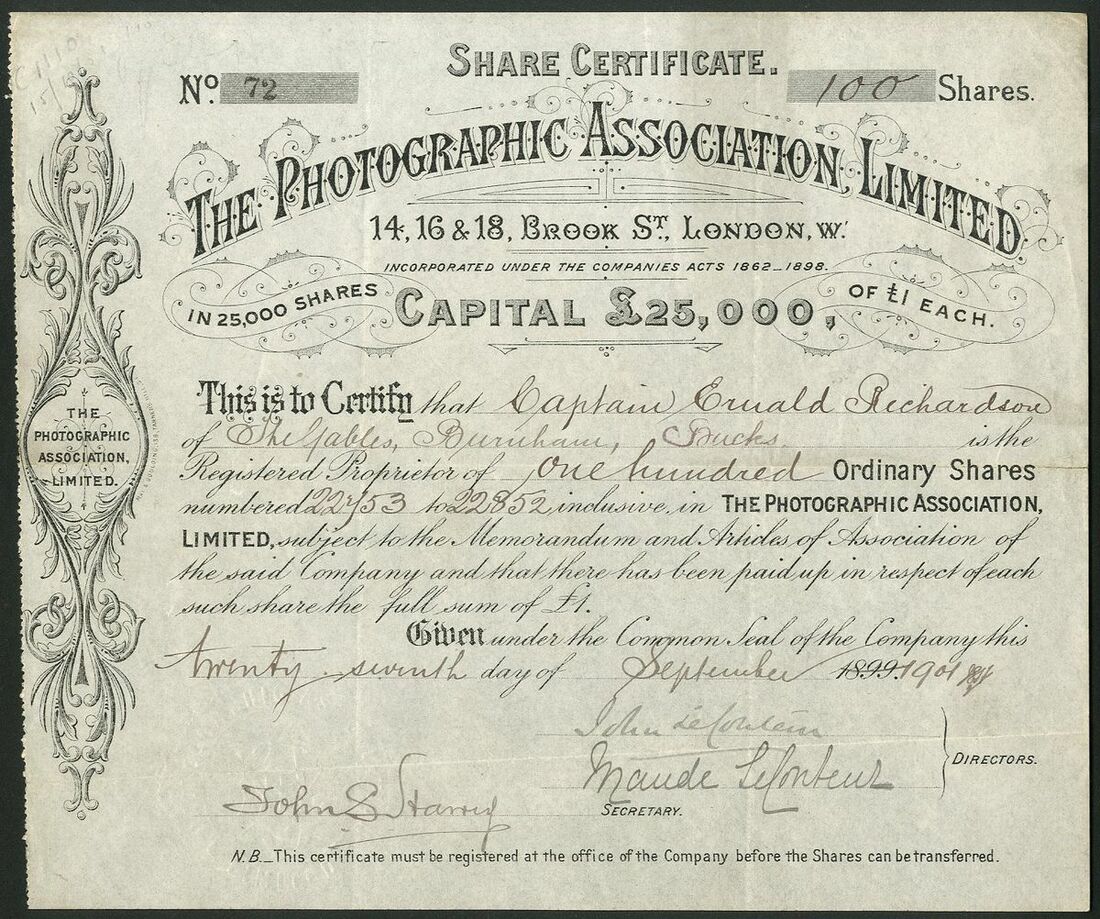 SHARE CERTIFICATE.
No. 72
100 Shares.
THE PHOTOGRAPHIC ASSOCIATION, LIMITED.
14, 16 & 18, BROOK ST, LONDON, W.
INCORPORATED UNDER THE COMPANIES ACTS 1862_1898.
IN 25,000 SHARES
CAPITAL £25,000,
OF £1 EACH.
THE
PHOTOGRAPHIC
ASSOCIATION,
LIMITED.
This is to Certify that Captain Ernald Richardson
of The Gables, Burnham, Bucks is the
Registered Proprietor of One hundred Ordinary Shares
numbered 22753 to 22852 inclusive, in THE PHOTOGRAPHIC ASSOCIATION,
LIMITED, subject to the Memorandum and Articles of Association of
the said Company and that there has been paid up in respect of each
such share the full sum of £1.
Given under the Common Seal of the Company this
twenty seventh day of September 1899. 1901
John
Maude
DIRECTORS.
John S
SECRETARY.
N.B._This certificate must be registered at the office of the Company before the Shares can be transferred.